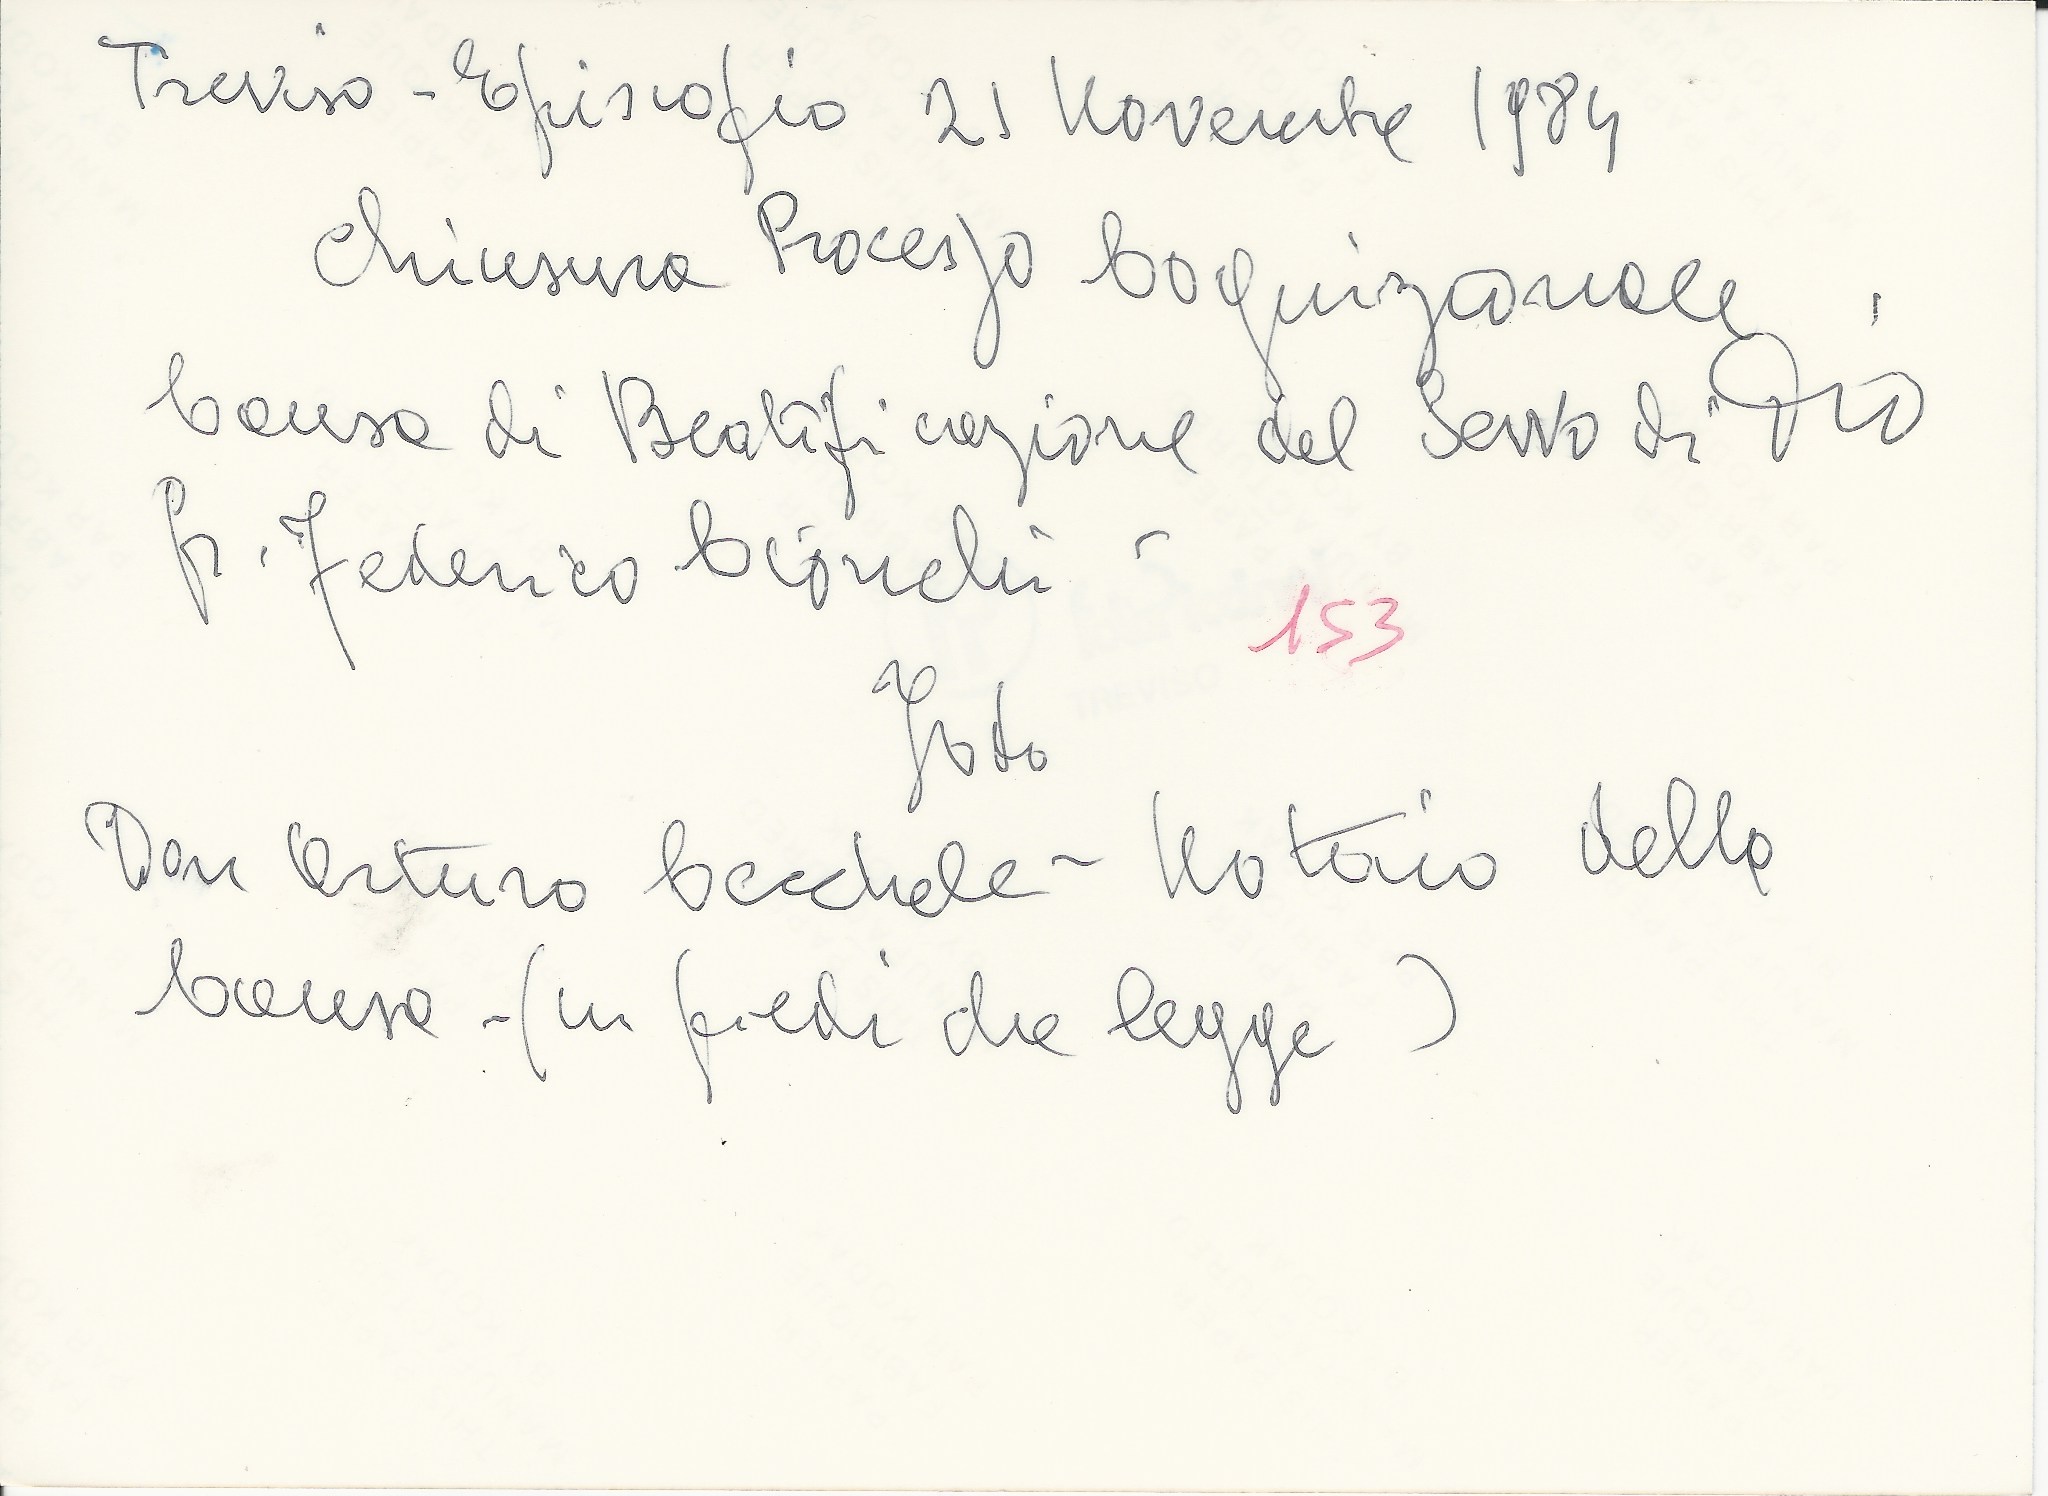 Treviso - Episcopio 21 Novembre 1984
Chiusura Processo Cognizionale
Causa di Beatificazione del Servo di Dio
fr. Federico Cionchi -
153
Foto
Don Arturo - Notaio della
Causa - (in piedi che legge)